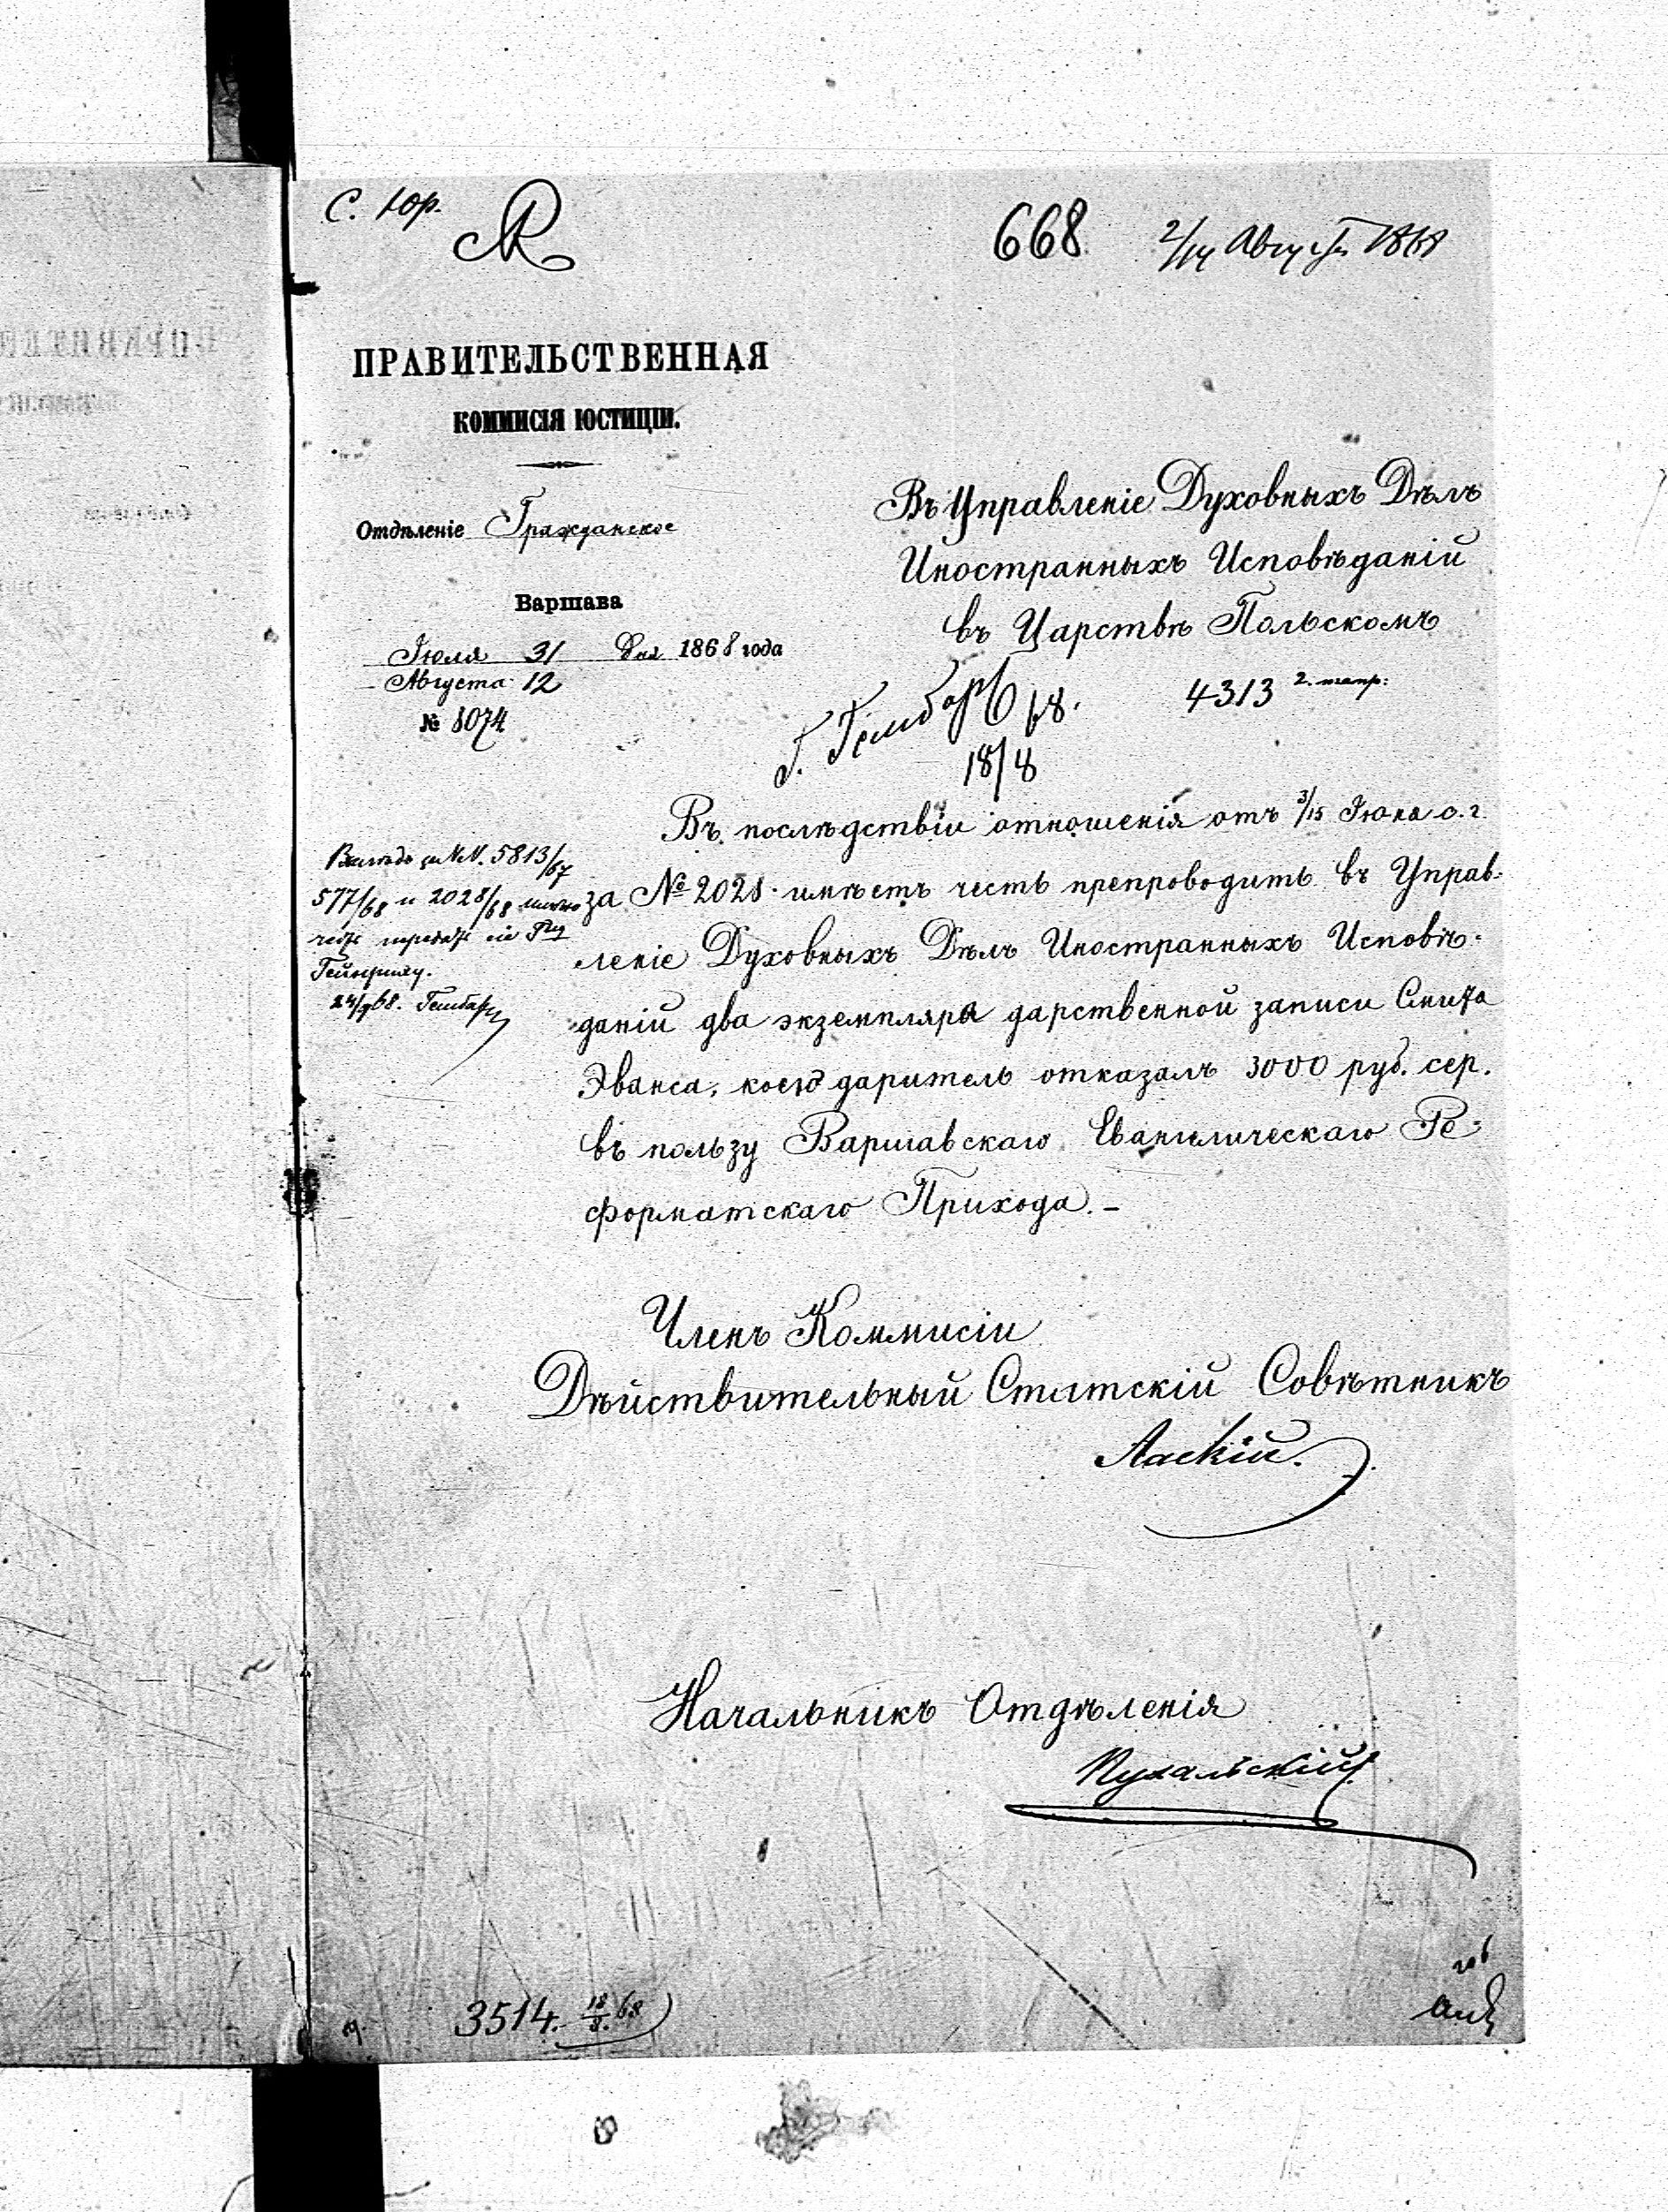 С. Юр.
668. 2/14 Августа 1868
ПРАВИТЕЛЬСТВЕННАЯ
КОММИСІЯ ЮСТИЦІИ.
Отдѣленіе Гражданское
Варшава
Іюля 31 дня 1868 года
Августа 12
№ 8074
Въ Управленіе Духовныхъ Дѣлъ
Иностранныхъ Исповѣданій
въ Царствѣ Польскомъ
4313 2.
Г.
18/8
Въ послѣдствіи отношенія отъ 3/15 Іюня с. г.
за № 2028 имѣетъ честь препроводить въ Управ-
леніе Духовныхъ Дѣлъ Иностранныхъ Исповѣ-
даній два экземпляра дарственной записи Смита
Эванса, коею даритель отказалъ 3000 руб. сер.
въ пользу Варшавскаго Евангелическаго Ре-
форматскаго Прихода.-
№№. 5813/67
577/68 и 2028/68
передать
Члень Коммисіи
Дѣйствительный Статскій Совѣтникъ
Ласкій.
Начальникъ Отдѣленія
Пухальскій
3514. 18/8. 68